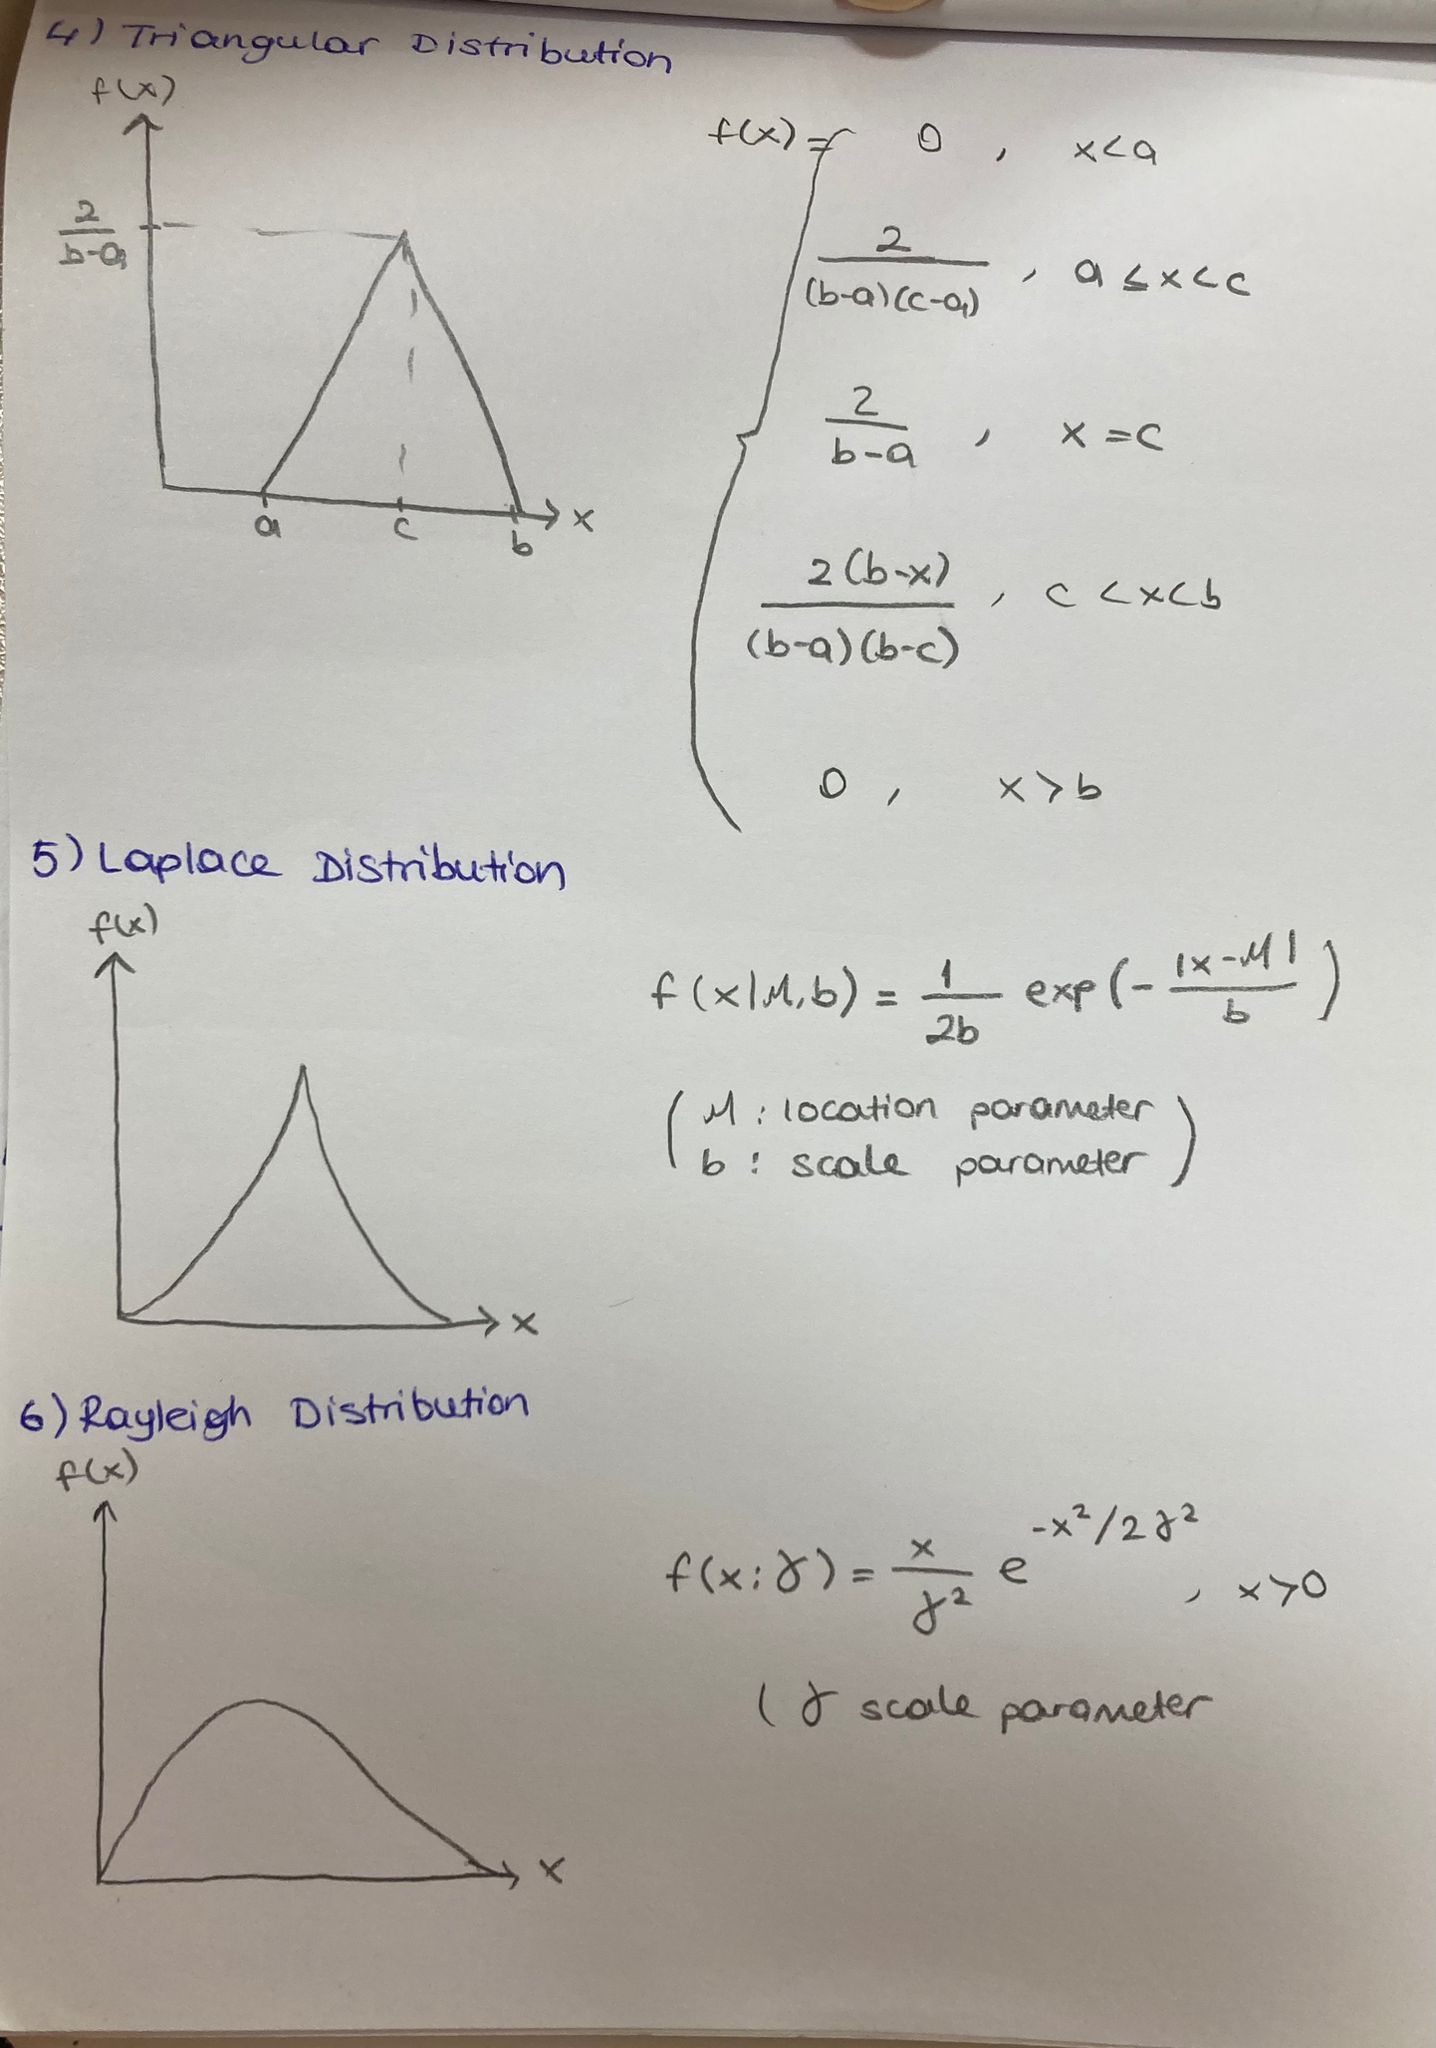 4) Triangular Distribution
f(x)
2/(b-a)
a c b x
f(x) = { 0 , x<a
2/((b-a)(c-a)) , a ≤ x < c
2/(b-a) , x = c
2(b-x)/((b-a)(b-c)) , c < x < b
0 , x > b
5) Laplace Distribution
f(x)
x
f(x|μ,b) = 1/(2b) exp(- |x-μ|/b)
(μ : location parameter
b : scale parameter)
6) Rayleigh Distribution
f(x)
x
f(x:γ) = x/γ² e^(-x²/2γ²) , x>0
(γ scale parameter